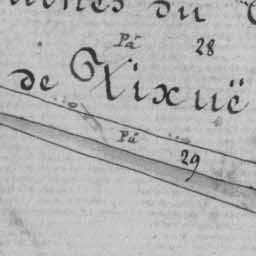 du
Pá 28
de Rixuë
Pá
29